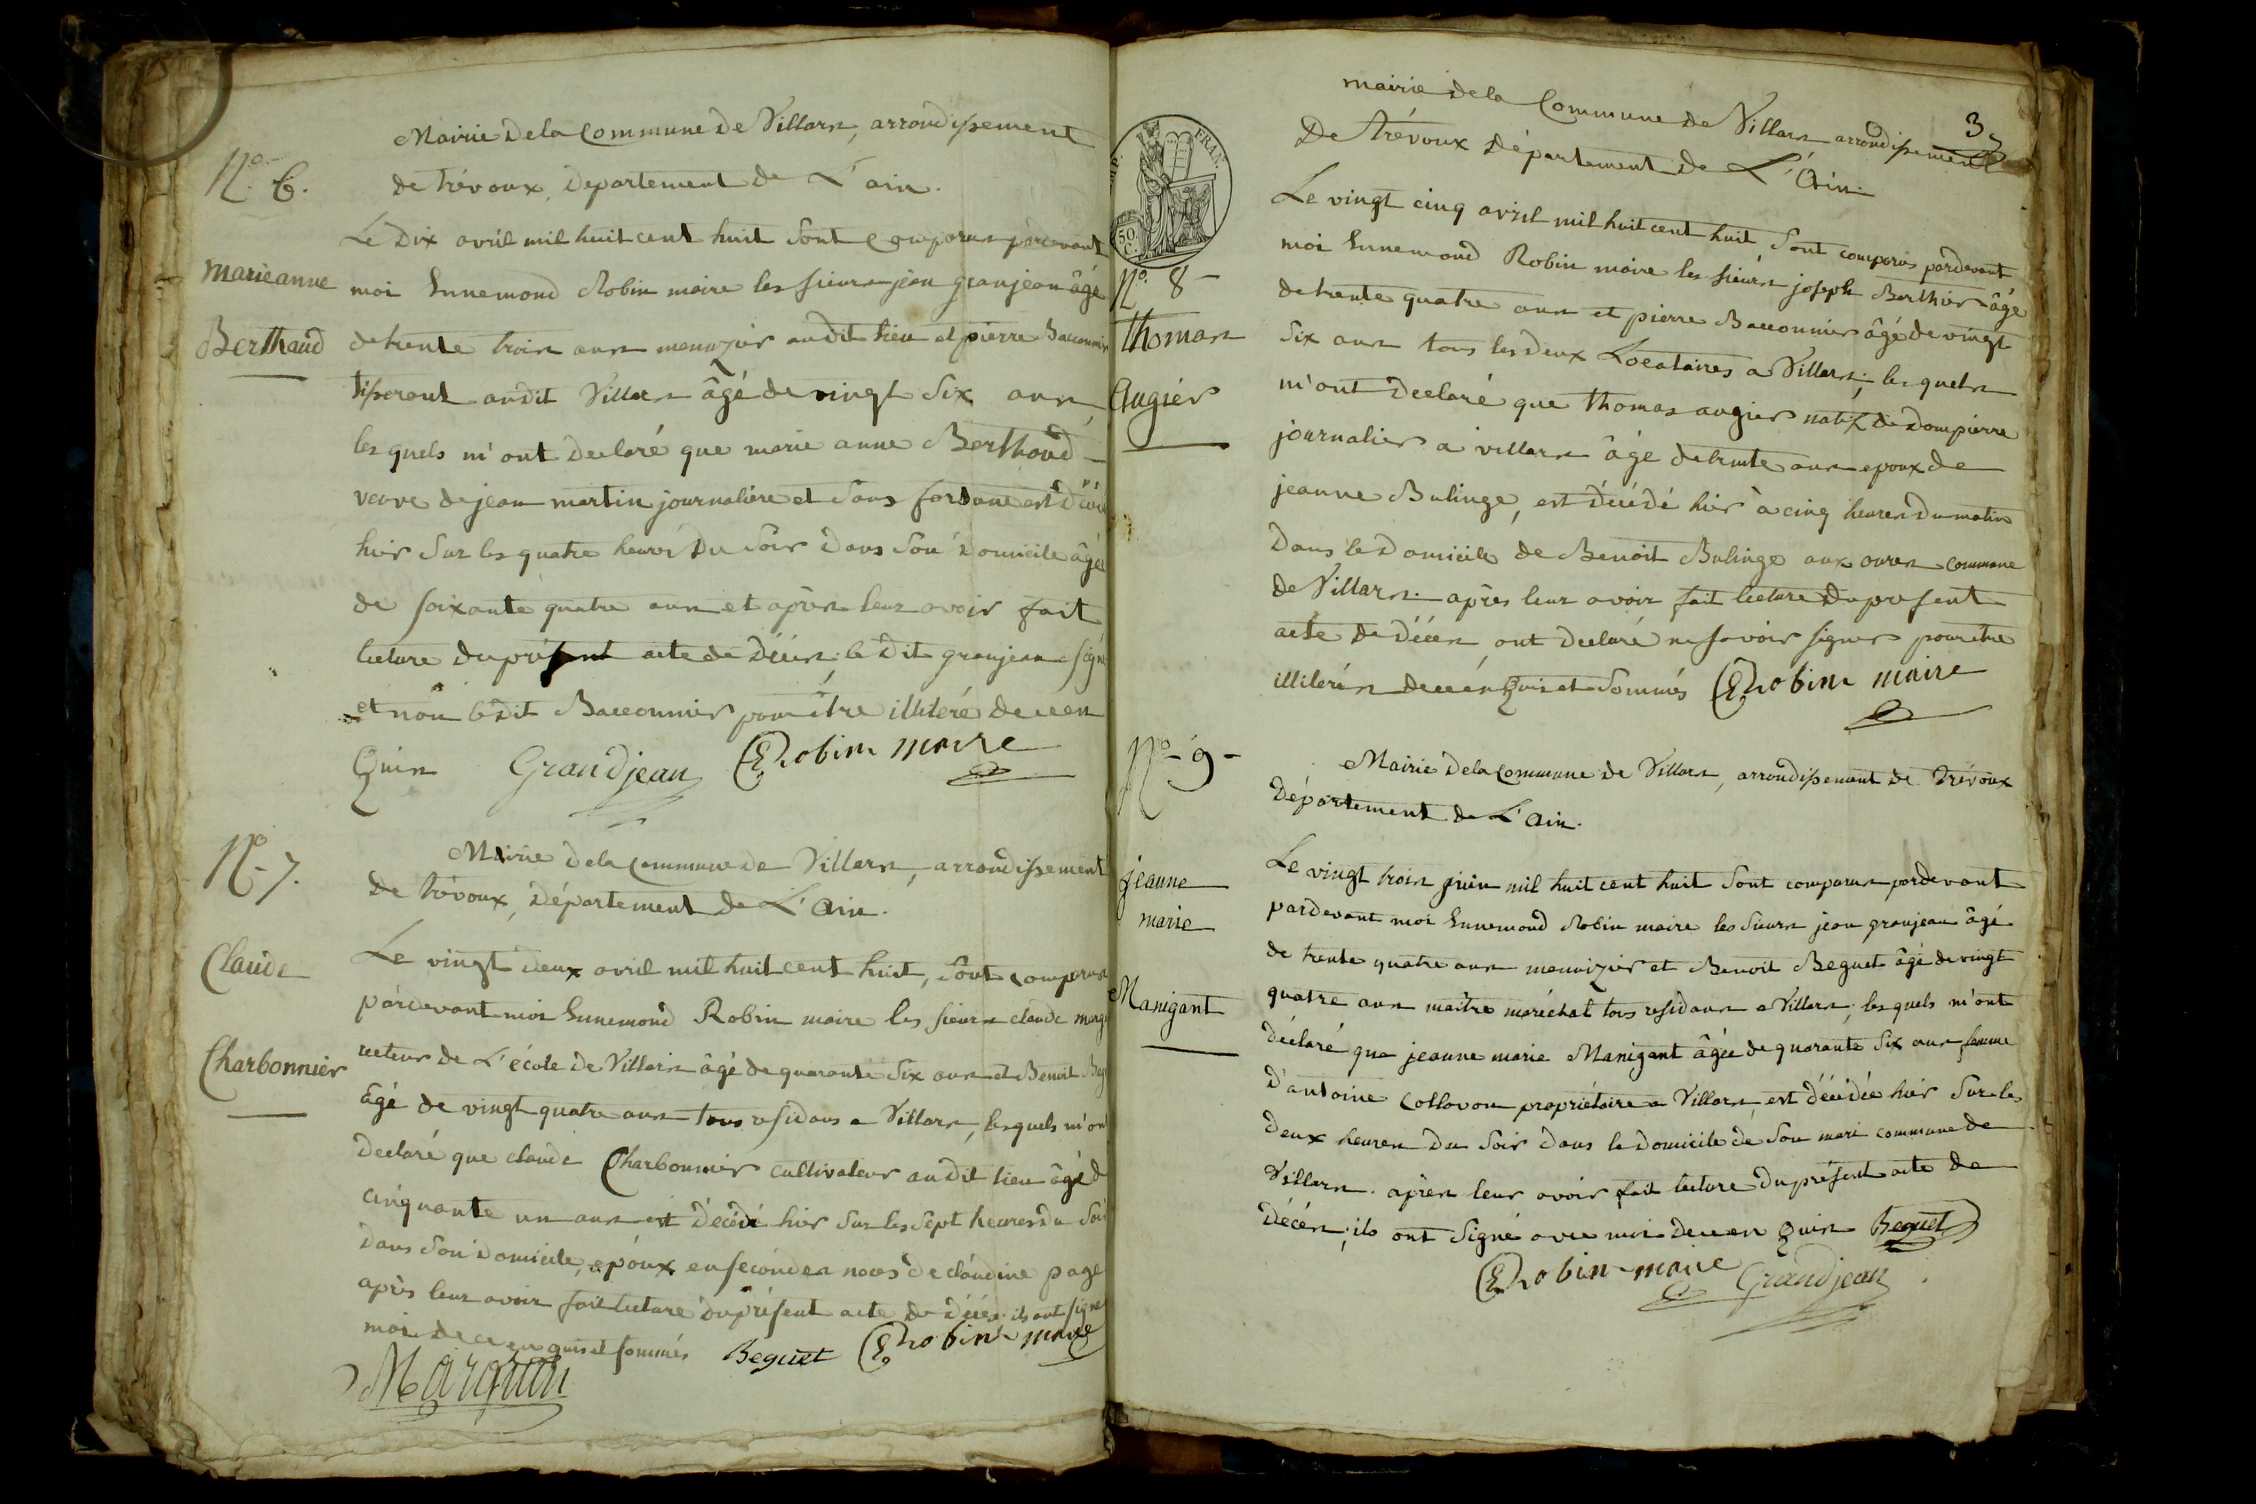 Mairie dela Commune de Villars, arrondissement
N.o 6.
de trévoux, Departement de L'ain.
Le Dix avril mil huit cent huit Sont comparus pardevant
marie anne
moi Ennemond Robin maire les sieurs jean granjean âgé
Berthaud
de trente trois ans menuzier audit lieu et pierre Bacconnier
tisserant audit Villars âgé de vingt Six ans,
les quels m'ont Declaré que marie anne Berthoud
veuve de jean martin journalière et Sans fortune est
hier Sur les quatre heures Du Soir Dans Son Domicile âgée
de soixante quatre ans et après leur avoir fait
lecture du présent acte de Décès. le Dit granjean a signé
et non le Dit Bacconnier pour être illitéré de ce en
Quis Grandjean ERobin maire
N.o 7.
Mairie dela Commune de Villars, arrondissement
de trévoux, Département de L'Ain.
Claude
Le vingt Deux avril mil huit cent huit, Sont comparus
pardevant moi Ennemond Robin maire les sieurs claude
Charbonnier
recteur de L'école de Villars âgé de quarante Six ans et Benoit
âgé de vingt quatre ans tous residans a Villars, lesquels m'ont
Declaré que claude Charbonnier cultivateur audit lieu âgé de
cinquante un ans est Décédé hier Sur les Sept heures du Soir
Dans Son Domicile, epoux en secondes noces de claudine page
après leur avoir fait lecture du présent acte de Décés. ils ont signé
moi de ce en quis et sommés Beguet ERobin maire
3
mairie de la Commune de Villars arrondissement
De trévoux Département de L'Ain.
FRAN
50 C.
Le vingt cinq avril mil huit cent huit Sont comparus pardevant
N.o 8
moi Ennemond Robin maire les sieurs joseph Berthier âgé
thomas
de trente quatre ans et pierre Bacconnier âgé de vingt
Six ans tous les deux Locataires a Villars; les quels
Augier
m'ont Declaré que thomas augier natif de Dompierre
journalier a villars âgé de trente ans epoux de
jeanne Bulinge, est Décédé hier à cinq heures Du matin
Dans le Domicile de Benoit Bulinge aux oures commune
de Villars. après leur avoir fait lecture Du present
acte de Décès ont declaré ne savoir signer pour être
illiterés de ce en Quis et Sommés ERobin maire
N.o 9
Mairie dela Commune de Villars, arrondissement de trévoux
Département de L'Ain.
jeanne
marie
Manigant
Le vingt trois juin mil huit cent huit Sont comparus pardevant
pardevant moi Ennemond Robin maire les Sieurs jean granjean âgé
de trente quatre ans menuizier et Benoit Beguet âgé de vingt
quatre ans maître maréchal tous residans a Villars; les quels m'ont
Déclaré que jeanne marie Manigant âgée de quarante Six ans femme
D'antoine Collovon propriétaire a Villars, est Décédée hier Sur les
Deux heures Du Soir Dans le Domicile de Son mari commune de
Villars. après leur avoir fait lecture Du présent acte de
Décés; ils ont Signé avec moi de ce en Quis Beguet
ERobin maire Grandjean